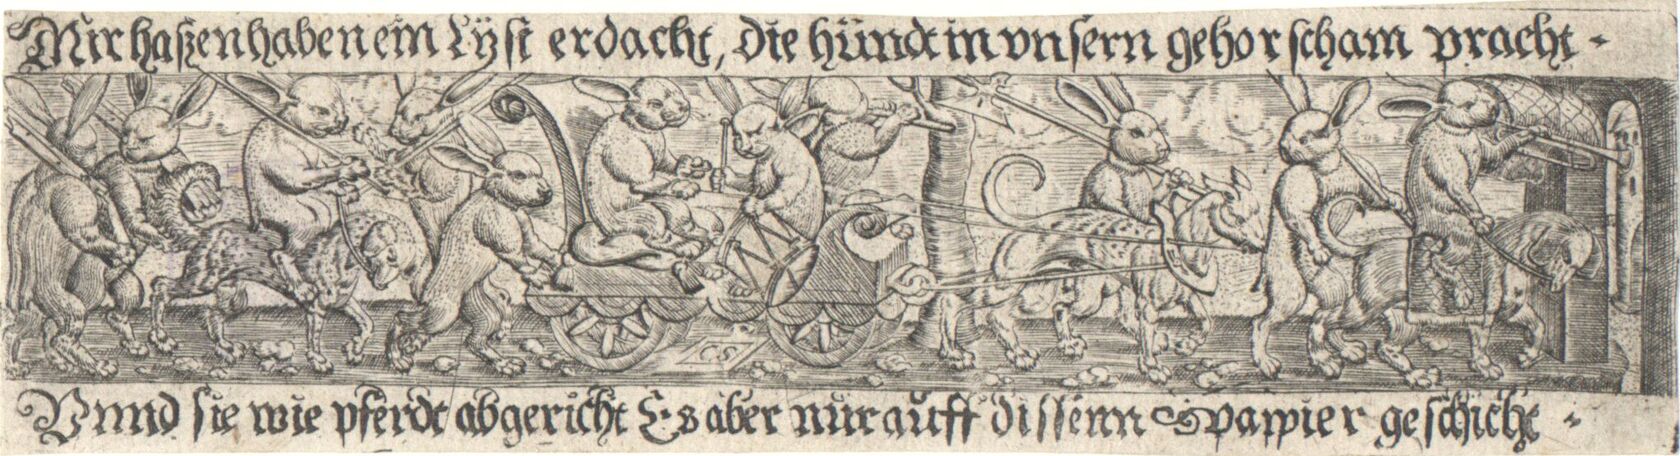 Mir haszen haben ein Lÿst erdacht, die hündt in vnsern gehorscham pracht
CS
Vnnd sie wie pferdt abgericht Es aber nur auff dissenn Pappier geschicht